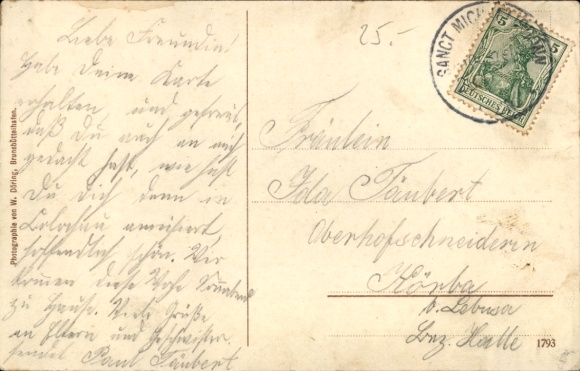 Liebe Freundin!
Habe Deine Karte
erhalten und gefreut,
daß Du auch an mich
gedacht hast, wie hast
Du Dich denn in
amüsiert
hoffentlich schön. Wir
kommen diese Woche
zu Hause. Viele Grüße
an Eltern und Geschwister
sendet Paul Täubert
Photographie von W. Döring, Brunsbüttelhafen.
25.-
SANCT MICH
5 5
DEUTSCHES REICH
Fräulein
Ida Täubert
Oberhofschneiderin
Körba
b. Lebusa
Bez. Halle
1793